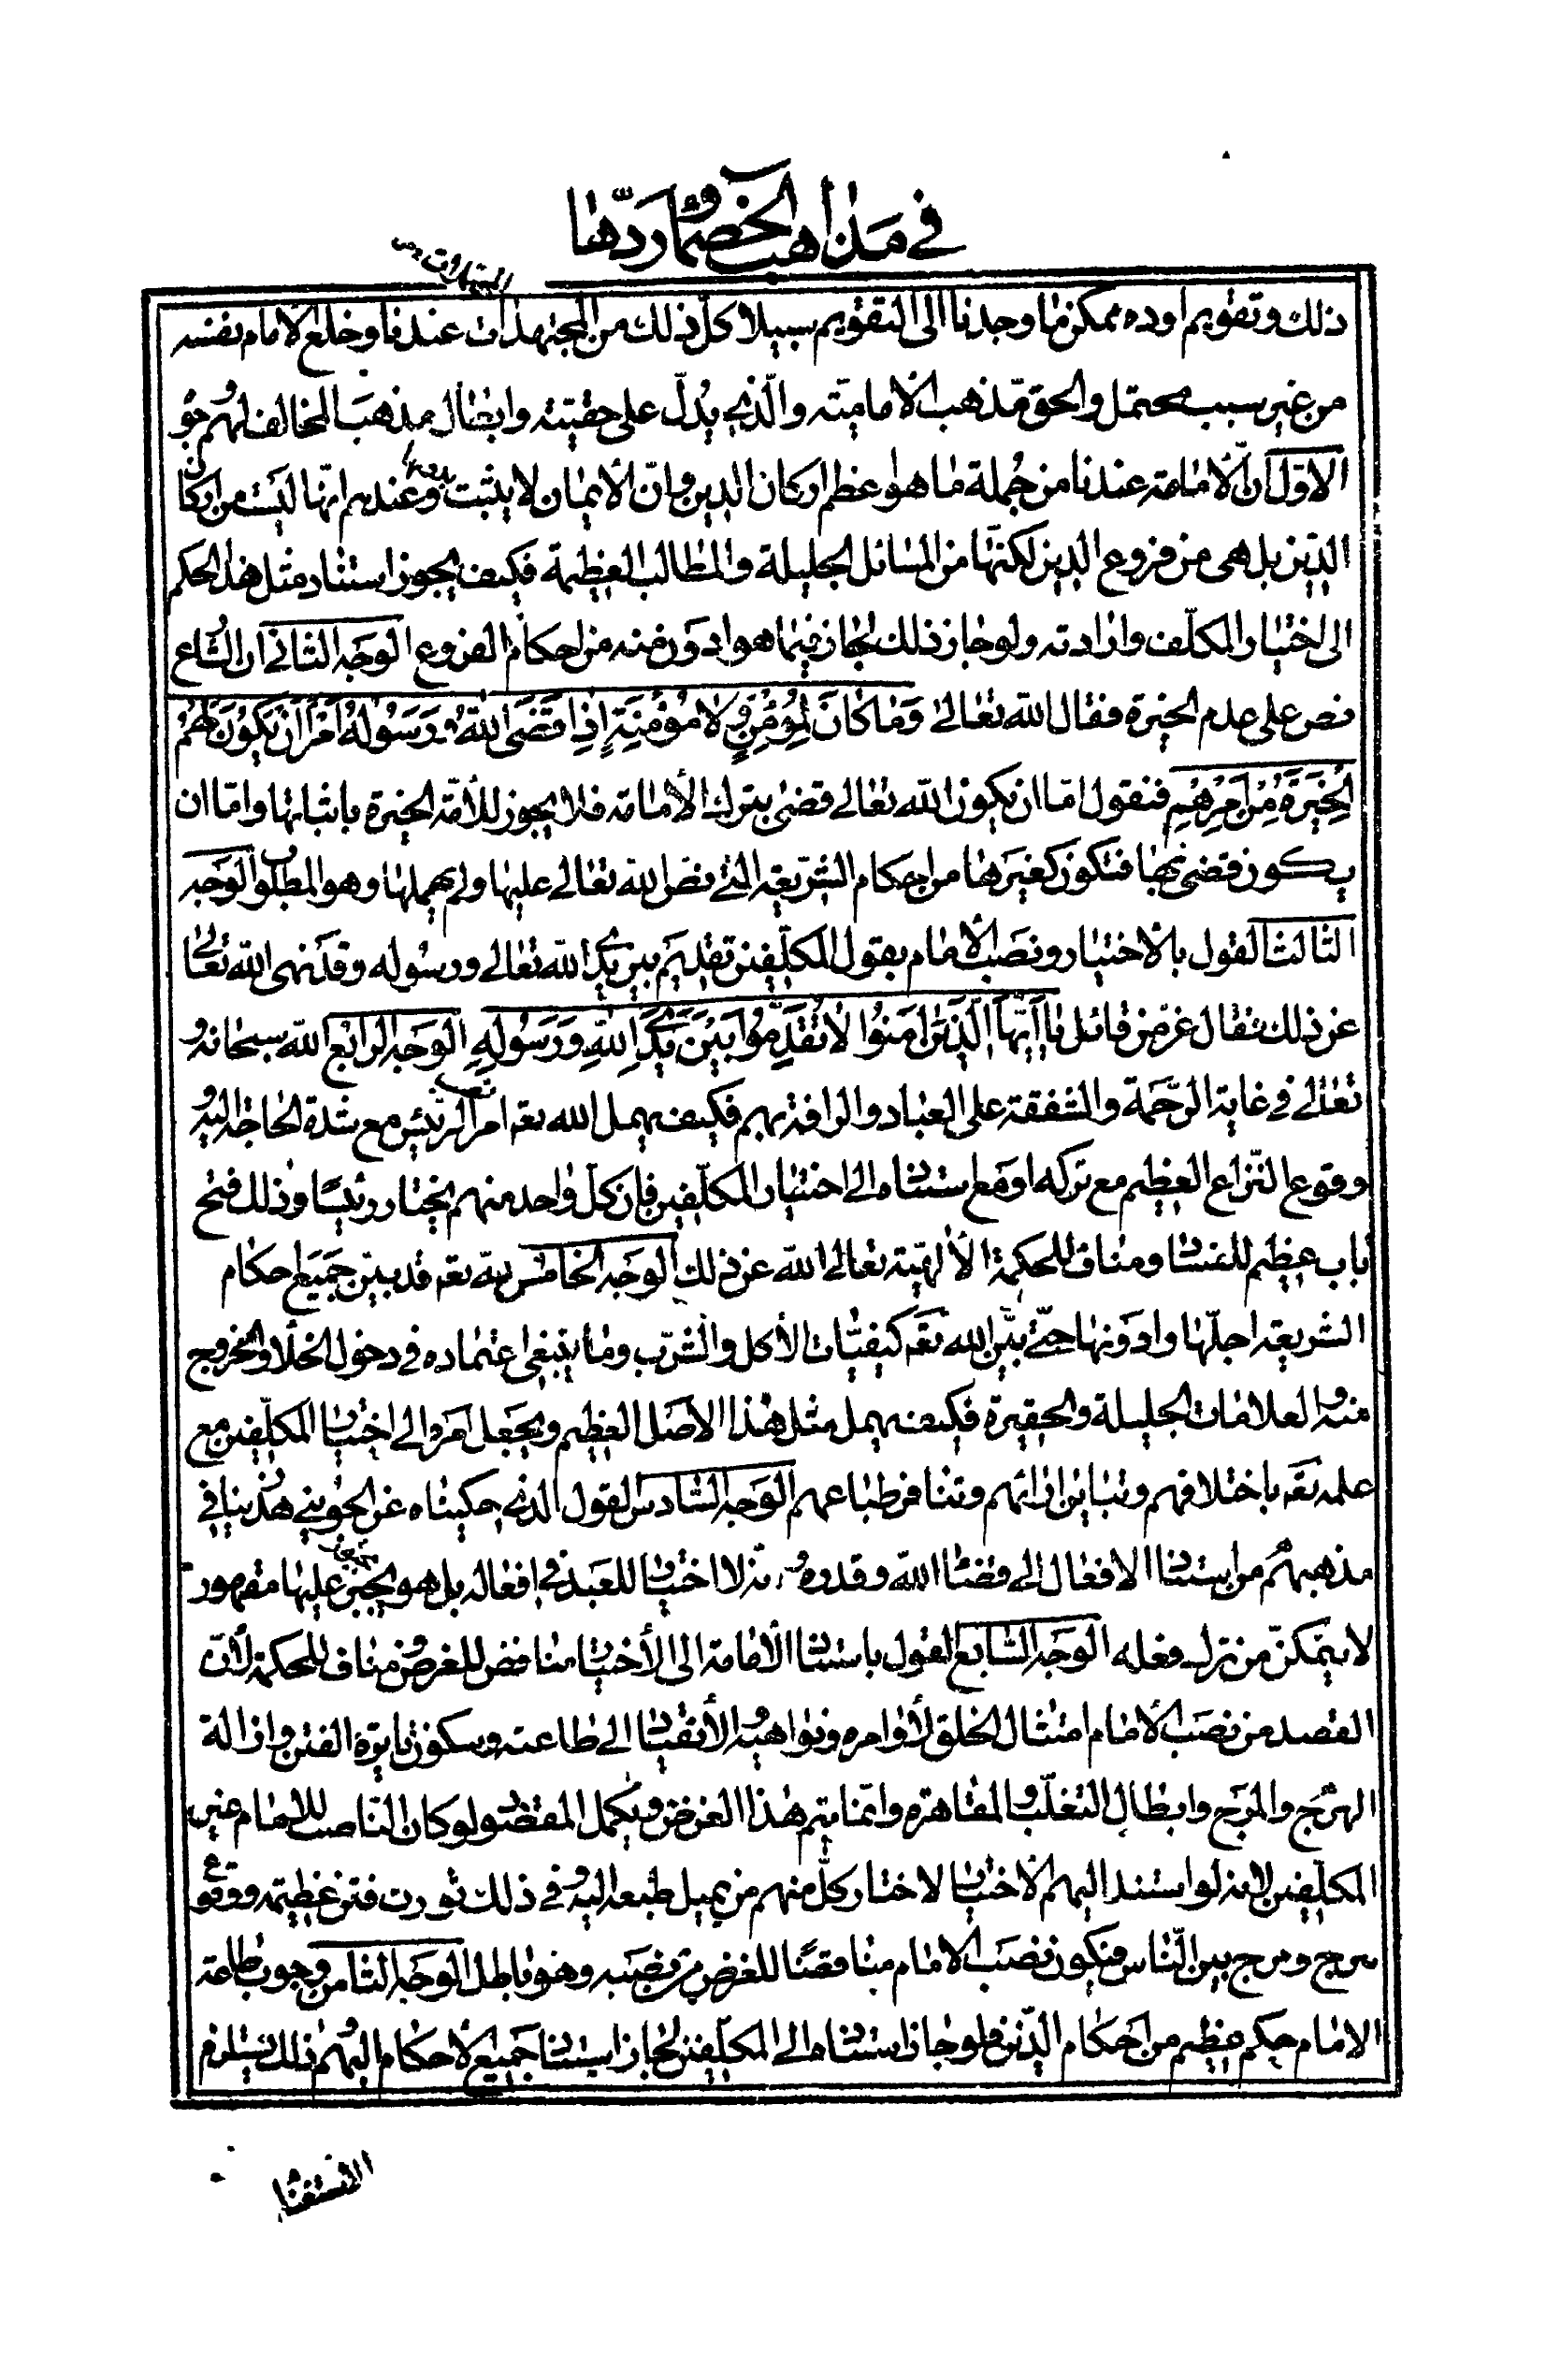 في مذاهب الخصم وردّها
ذلك وتقويم اوده ممكن مهما وجدنا الى التقويم سبيلا كلّ ذلك من المجتهدات عندنا وخلع الامام نفسه
من غير سبب محتمل والحق مذهب الامامية والّذي يدلّ على حقيته وابطال مذهب المخالف لهم وجوه
الاوّل انّ الامامة عندنا من جملة ما هو اعظم اركان الدين وانّ الايمان لا يثبت بدونها وعندهم انّها ليست من اركان
الدّين بل هي من فروع الدين لكنّها من المسائل الجليلة والمطالب العظيمة فكيف يجوز استناد مثل هذا الحكم
الى اختيار المكلّف وارادته ولو جاز ذلك لجاز فيما هو ادون منه من احكام الفروع الوجه الثاني ان الشارع
نص على عدم الخيرة فقال الله تعالى وَمَا كَانَ لِمُؤْمِنٍ وَلا مُؤْمِنَةٍ إِذا قَضَى اللهُ وَرَسُولُهُ أَمْراً أَنْ يَكُونَ لَهُمُ
الْخِيَرَةُ مِنْ أَمْرِهِمْ فنقول امّا ان يكون الله تعالى قضى بترك الأمامة فلا يجوز للأمّة الخيرة باثباتها وامّا ان
يكون قضى بها فتكون كغيرها من احكام الشريعة التي نصّ الله تعالى عليها ولم يهملها وهو المطلوب الوجه
الثالث القول بالأختيار ونصب الأمام بقول المكلّفين تقديم بين يدي الله تعالى ورسوله وقد نهى الله تعالى
عن ذلك فقال عزّ من قائل يا أَيُّهَا الَّذِينَ آمَنُوا لا تُقَدِّمُوا بَيْنَ يَدَيِ اللهِ وَرَسُولِهِ الوجه الرابع الله سبحانه و
تعالى في غاية الرّحمة والشفقة على العباد والرافة بهم فكيف يهمل الله تعه امر نصب الرئيس مع شدة الحاجة اليه و
وقوع النّزاع العظيم مع تركه او مع استناده الى اختيار المكلّفين فان كلّ واحد منهم يختار رئيسا وذلك فتح
باب عظيم للفساد ومناف للحكمة الألهيّة تعالى الله عن ذلك الوجه الخامس انه تعه قد بيّن جميع احكام
الشريعة اجلّها وادونها حتّى بيّن الله تعه كيفيّات الأكل والشرب وما ينبغي اعتماده في دخول الخلأ والخروج
منه والعلامات الجليلة والحقيرة فكيف يهمل مثل هذا الاصل العظيم ويجعل امره الى اختيار المكلّفين مع
علمه تعه باختلافهم وتباين ارائهم وتنافر طباعهم الوجه السادس القول الذي حكيناه عن الجويني هذا ينافي
مذهبهم من استناد الافعال الى قضاء الله وقدره وانّه لا اختيار للعبد في افعاله بل هو مجبر عليها مقهور
لا يتمكّن من ترك فعله الوجه السّابع القول باستناد الأمامة الى الأختيار مناقض للغرض ومناف للحكمة لأنّ
القصد من نصب الأمام امتثال الخلق لأوامره ونواهيه والأنقياد الى طاعته وسكون نايرة الفتن وازالة
الهرج والمرج وابطال التغلّب والمقاهرة وانّما يتم هذا الغرض ويكمل المقصود لو كان النّاصب للامام غير
المكلّفين لانه لو استند اليهم الأختيار لاختار كلّ منهم من يميل طبعه اليه وفي ذلك ثوران فتن عظيمة ووقوع
هرج ومرج بين النّاس فيكون نصب الامام مناقضًا للغرض من نصبه وهو باطل الوجه الثامن وجوب طاعة
الامام حكم عظيم من احكام الدّين فلو جاز استناده الى المكلّفين لجاز استناد جميع الأحكام اليهم وذلك يستلزم
الاستغناء